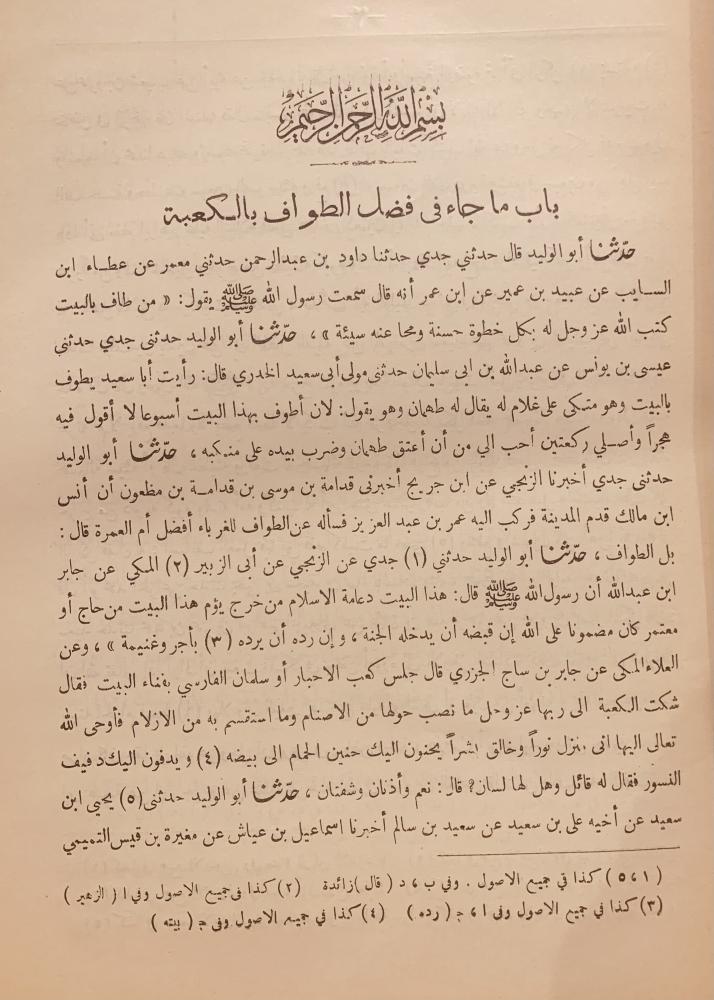 بسم الله الرحمن الرحيم
باب ما جاء فى فضل الطواف بالكعبة
حدّثنا أبو الوليد قال حدثني جدي حدثنا داود بن عبدالرحمن حدثني معمر عن عطاء ابن
السايب عن عبيد بن عمير عن ابن عمر أنه قال سمعت رسول الله ﷺ يقول: « من طاف بالبيت
كتب الله عز وجل له بكل خطوة حسنة ومحا عنه سيئة » ، حدّثنا أبو الوليد حدثنى جدي حدثني
عيسى بن يونس عن عبدالله بن ابى سليمان حدثنى مولى أبى سعيد الخدري قال: رأيت أبا سعيد يطوف
بالبيت وهو متكى على غلام له يقال له طهمان وهو يقول: لان أطوف بهذا البيت أسبوعا لا أقول فيه
هجراً وأصلي ركعتين أحب الي من أن أعتق طهمان وضرب بيده على منكبه ، حدّثنا أبو الوليد
حدثنى جدي أخبرنا الزنجي عن ابن جريج أخبرنى قدامة بن موسى بن قدامة بن مظعون أن أنس
ابن مالك قدم المدينة فركب اليه عمر بن عبد العزيز فسأله عن الطواف للغرباء أفضل أم العمرة قال :
بل الطواف ، حدّثنا أبو الوليد حدثني (١) جدي عن الزنجي عن أبى الزبير (٢) المكي عن جابر
ابن عبدالله أن رسول الله ﷺ قال: هذا البيت دعامة الاسلام من خرج يؤم هذا البيت من حاج أو
معتمر كان مضمونا على الله إن قبضه أن يدخله الجنة ، وإن رده أن يرده (٣) بأجر وغنيمة » ، وعن
العلاء المكى عن جابر بن ساج الجزري قال جلس كعب الاحبار أو سلمان الفارسي بفناء البيت فقال
شكت الكعبة الى ربها عز وجل ما نصب حولها من الاصنام وما استقسم به من الازلام فأوحى الله
تعالى اليها انى منزل نوراً وخالق بشراً يحنون اليك حنين الحمام الى بيضه (٤) ويدفون اليك دفيف
النسور فقال له قائل وهل لها لسان؟ قال: نعم وأذنان وشفتان ، حدّثنا أبو الوليد حدثنى (٥) يحيى ابن
سعيد عن أخيه على بن سعيد عن سعيد بن سالم أخبرنا اسماعيل بن عياش عن مغيرة بن قيس التميمي
(١ ، ٥) كذا في جميع الاصول . وفي ب ، د ( قال ) زائدة (٢) كذا فى جميع الاصول وفي ا ( الزهير )
(٣) كذا في جميع الاصول وفى ا ، ج ( رده ) (٤) كذا في جميع الاصول وفى ج ( بيته )